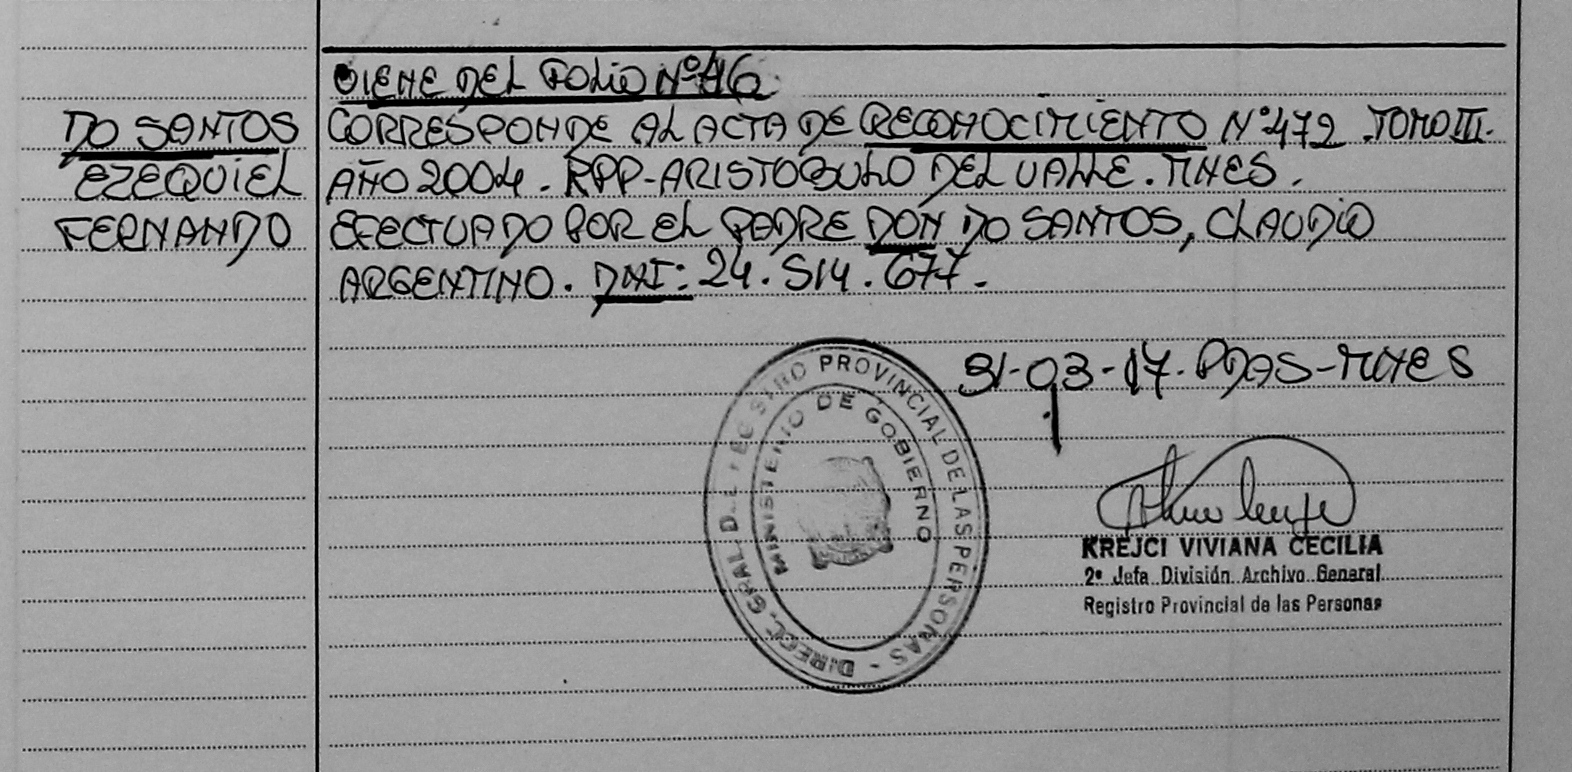 VIENE DEL FOLIO Nº 46
DO SANTOS
EZEQUIEL
FERNANDO
CORRESPONDE AL ACTA DE RECONOCIMIENTO Nº 472. TOMO III.
AÑO 2004. RPP-ARISTOBULO DEL VALLE. MNES.
EFECTUADO POR EL PADRE DON DO SANTOS, CLAUDIO
ARGENTINO. DNI: 24.514.677.
31-03-17. PDAS-MNES
DIRECC. GRAL. DEL REGISTRO PROVINCIAL DE LAS PERSONAS -
MINISTERIO DE GOBIERNO
KREJCI VIVIANA CECILIA
2º Jefa División Archivo General
Registro Provincial de las Personas